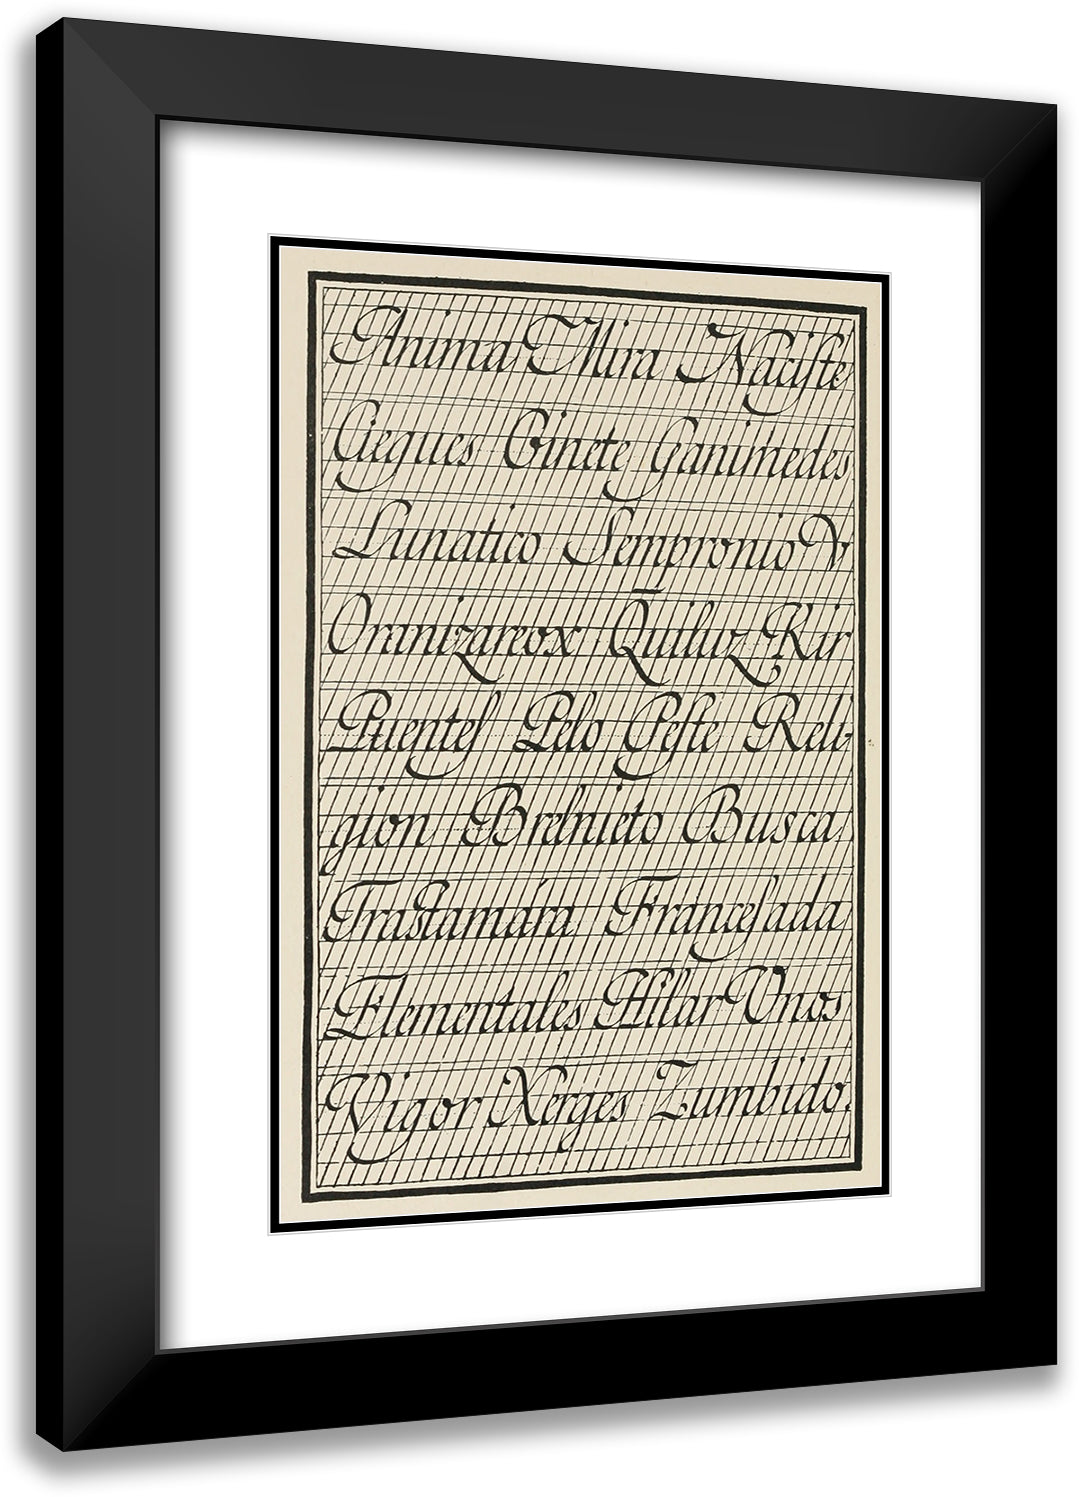 Anima Mira Naciste
Ciegues Ginete Ganimedes
Lunatico Sempronio V
Oranizareox Quiluz Kir
Puentes Pelo Peste Reli-
gion Brelnieto Busca
Trastamára Francelada
Elementales Hilar Vnos
Vigor Xerges Zumbido.